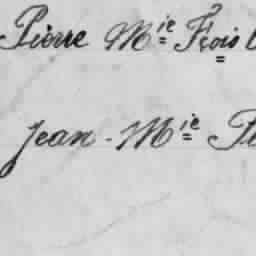 Pierre Mie Fçois
Jean-Mie